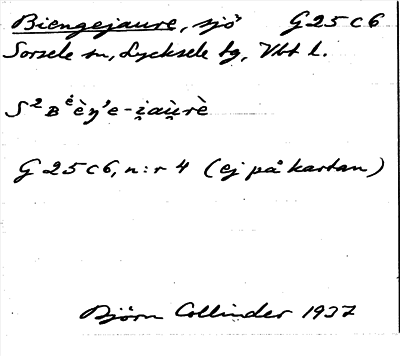 Biengejaure, sjö G 25 c 6
Sorsele sn, Lycksele tg, Vbt l.
G 25 c 6, n:r 4 (ej på kartan)
Björn Collinder 1937